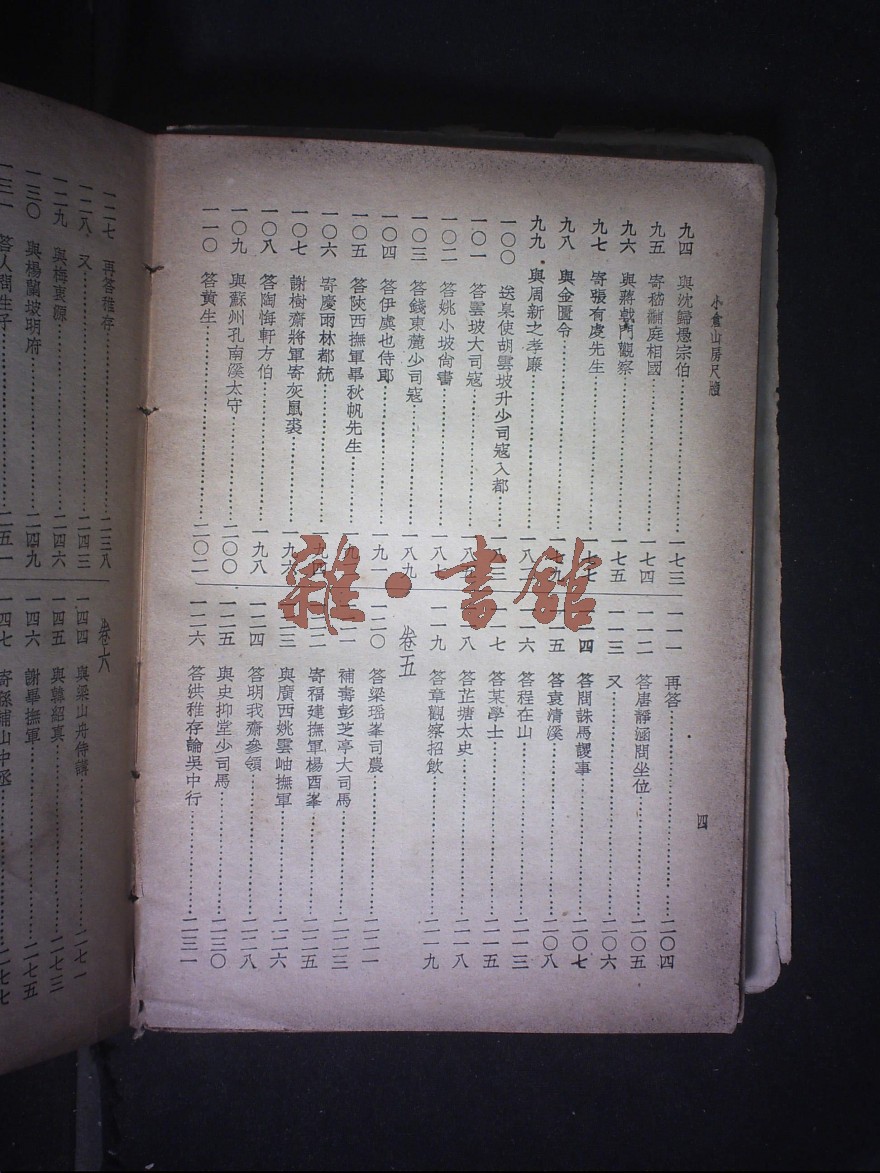 小倉山房尺牘
四
九四 與沈歸愚宗伯 一七三
九五 寄嵇黼庭相國 一七四
九六 與蔣戟門觀察 一七五
九七 寄張有虔先生 一七七
九八 與金匱令 一七九
九九 與周新之孝廉 一八一
一〇〇 送臬使胡雲坡升少司寇入都 一八三
一〇一 答雲坡大司寇
一〇二 答姚小坡尙書 一八七
一〇三 答錢東麓少司寇 一八九
一〇四 答伊虞也侍郞 一九一
一〇五 答陝西撫軍畢秋帆先生
一〇六 寄慶雨林都統 一九四
一〇七 謝樹齋將軍寄灰鼠裘 一九六
一〇八 答陶悔軒方伯 一九八
一〇九 與蘇州孔南溪太守 二〇〇
一一〇 答黃生 二〇二
一一一 再答 二〇四
一一二 答唐靜涵問坐位 二〇五
一一三 又 二〇六
一一四 答問誅馬謖事 二〇七
一一五 答袁清溪 二〇八
一一六 答程在山 二一三
一一七 答某學士 二一五
一一八 答芷塘太史 二一八
一一九 答章觀察招飲 二一九
卷五
一二〇 答梁瑶峯司農 二二一
一二一 補壽彭芝亭大司馬 二二三
一二二 寄福建撫軍楊酉峯 二二五
一二三 與廣西姚雲岫撫軍 二二六
一二四 答明我齋參領 二二八
一二五 與史抑堂少司馬 二三〇
一二六 答洪稚存論吳中行 二三一
一二七 再答稚存 二三八
一二八 又 二四三
一二九 與梅衷源 二四六
一三〇 與楊蘭坡明府 二四九
一三一 答人問生子 二五一
卷六
一四四 與梁山舟侍講 二七一
一四五 與韓紹真 二七三
一四六 謝畢撫軍 二七五
一四七 寄孫補山中丞 二七七
雜·書館